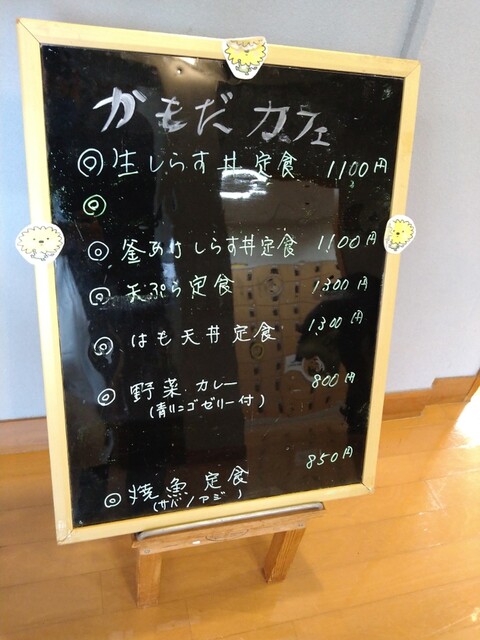 かもだ カフェ
◎ 生しらす丼定食 1100円
◎
◎ 釜あげしらす丼定食 1100円
◎ 天ぷら定食 1,300円
◎ はも天丼定食 1,300円
◎ 野菜カレー 800円
(青リンゴゼリー付)
◎ 焼魚定食 850円
(サバ/アジ)